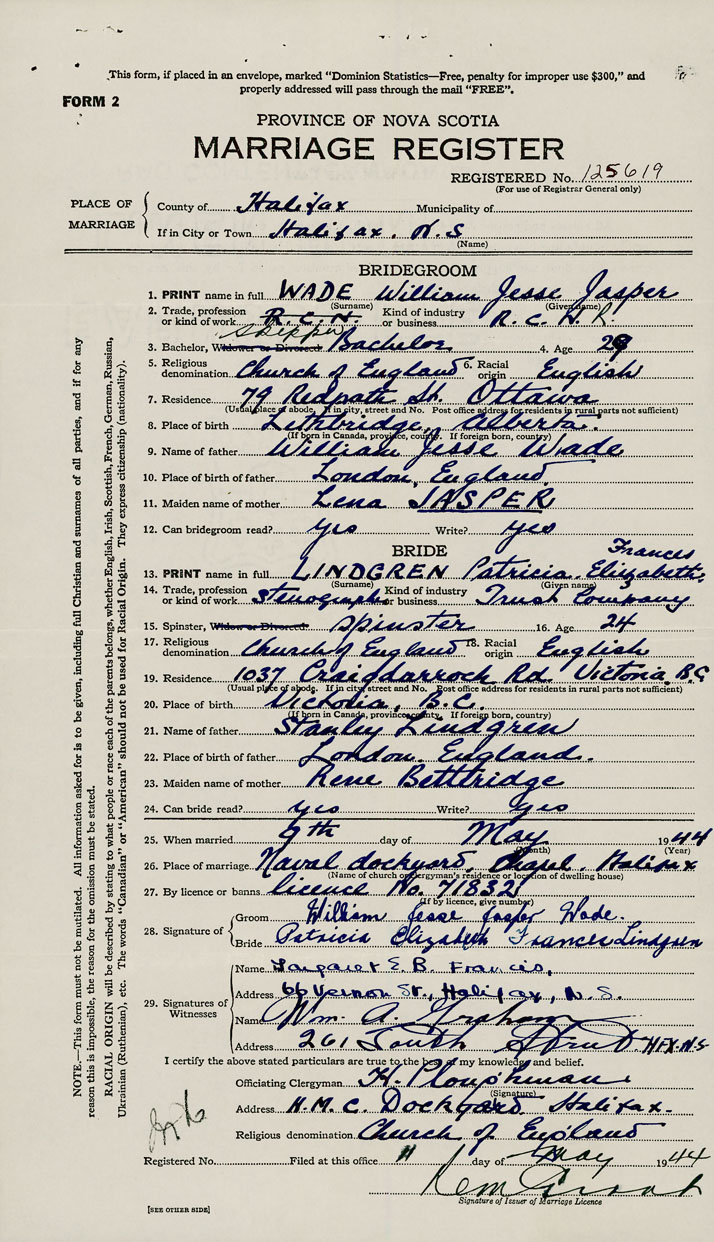 This form, if placed in an envelope, marked "Dominion Statistics—Free, penalty for improper use $300," and
properly addressed will pass through the mail "FREE".
FORM 2
PROVINCE OF NOVA SCOTIA
MARRIAGE REGISTER
REGISTERED No. 125619
(For use of Registrar General only)
PLACE OF MARRIAGE
County of Halifax Municipality of
If in City or Town Halifax. N.S
(Name)
BRIDEGROOM
1. PRINT name in full WADE William Jesse Jasper
(Surname) (Given name)
2. Trade, profession or kind of work R.C.N. Skipper Kind of industry or business R.C.N.R.
3. Bachelor, Widower or Divorced Bachelor 4. Age 29
5. Religious denomination Church of England 6. Racial origin English
7. Residence 79 Redpath St. Ottawa
(Usual place of abode. If in city, street and No. Post office address for residents in rural parts not sufficient)
8. Place of birth Lethbridge, Alberta.
(If born in Canada, province, county. If foreign born, country)
9. Name of father William Jesse Wade
10. Place of birth of father London, England
11. Maiden name of mother Lena JASPER
12. Can bridegroom read? yes Write? yes
BRIDE
Frances
13. PRINT name in full LINDGREN Patricia Elizabeth
(Surname) (Given name)
14. Trade, profession or kind of work Stenographer Kind of industry or business Trust Company
15. Spinster, Widow or Divorced Spinster 16. Age 24
17. Religious denomination Church of England 18. Racial origin English
19. Residence 1037 Craigdarrock Rd. Victoria, B.C
(Usual place of abode. If in city, street and No. Post office address for residents in rural parts not sufficient)
20. Place of birth Victoria, B.C.
(If born in Canada, province, county. If foreign born, country)
21. Name of father Stanley Lindgren
22. Place of birth of father London, England.
23. Maiden name of mother Rene Betttridge
24. Can bride read? yes Write? yes
25. When married 9th day of May 1944
(Month) (Year)
26. Place of marriage Naval dockyard, Chapel. Halifax
(Name of church or clergyman's residence or location of dwelling house)
27. By licence or banns licence No. 71832
(If by licence, give number)
28. Signature of
Groom William Jesse Jasper Wade.
Bride Patricia Elizabeth Frances Lindgren
29. Signatures of Witnesses
Name Margaret E. B. Francis,
Address 66 Vernon St., Halifax, N.S.
Name Wm. A. Graham
Address 261 South Street HFX. N.S
I certify the above stated particulars are true to the best of my knowledge and belief.
Officiating Clergyman H. Ploughman
(Signature)
Address H.M.C. Dockyard. Halifax.
Religious denomination Church of England
Registered No. Filed at this office 11 day of May 1944
Signature of Issuer of Marriage Licence
[SEE OTHER SIDE]
NOTE.—This form must not be mutilated. All information asked for is to be given, including full Christian and surnames of all parties, and if for any
reason this is impossible, the reason for the omission must be stated.
RACIAL ORIGIN will be described by stating to what people or race each of the parents belongs, whether English, Irish, Scottish, French, German, Russian,
Ukrainian (Ruthenian), etc. The words "Canadian" or "American" should not be used for Racial Origin. They express citizenship (nationality).